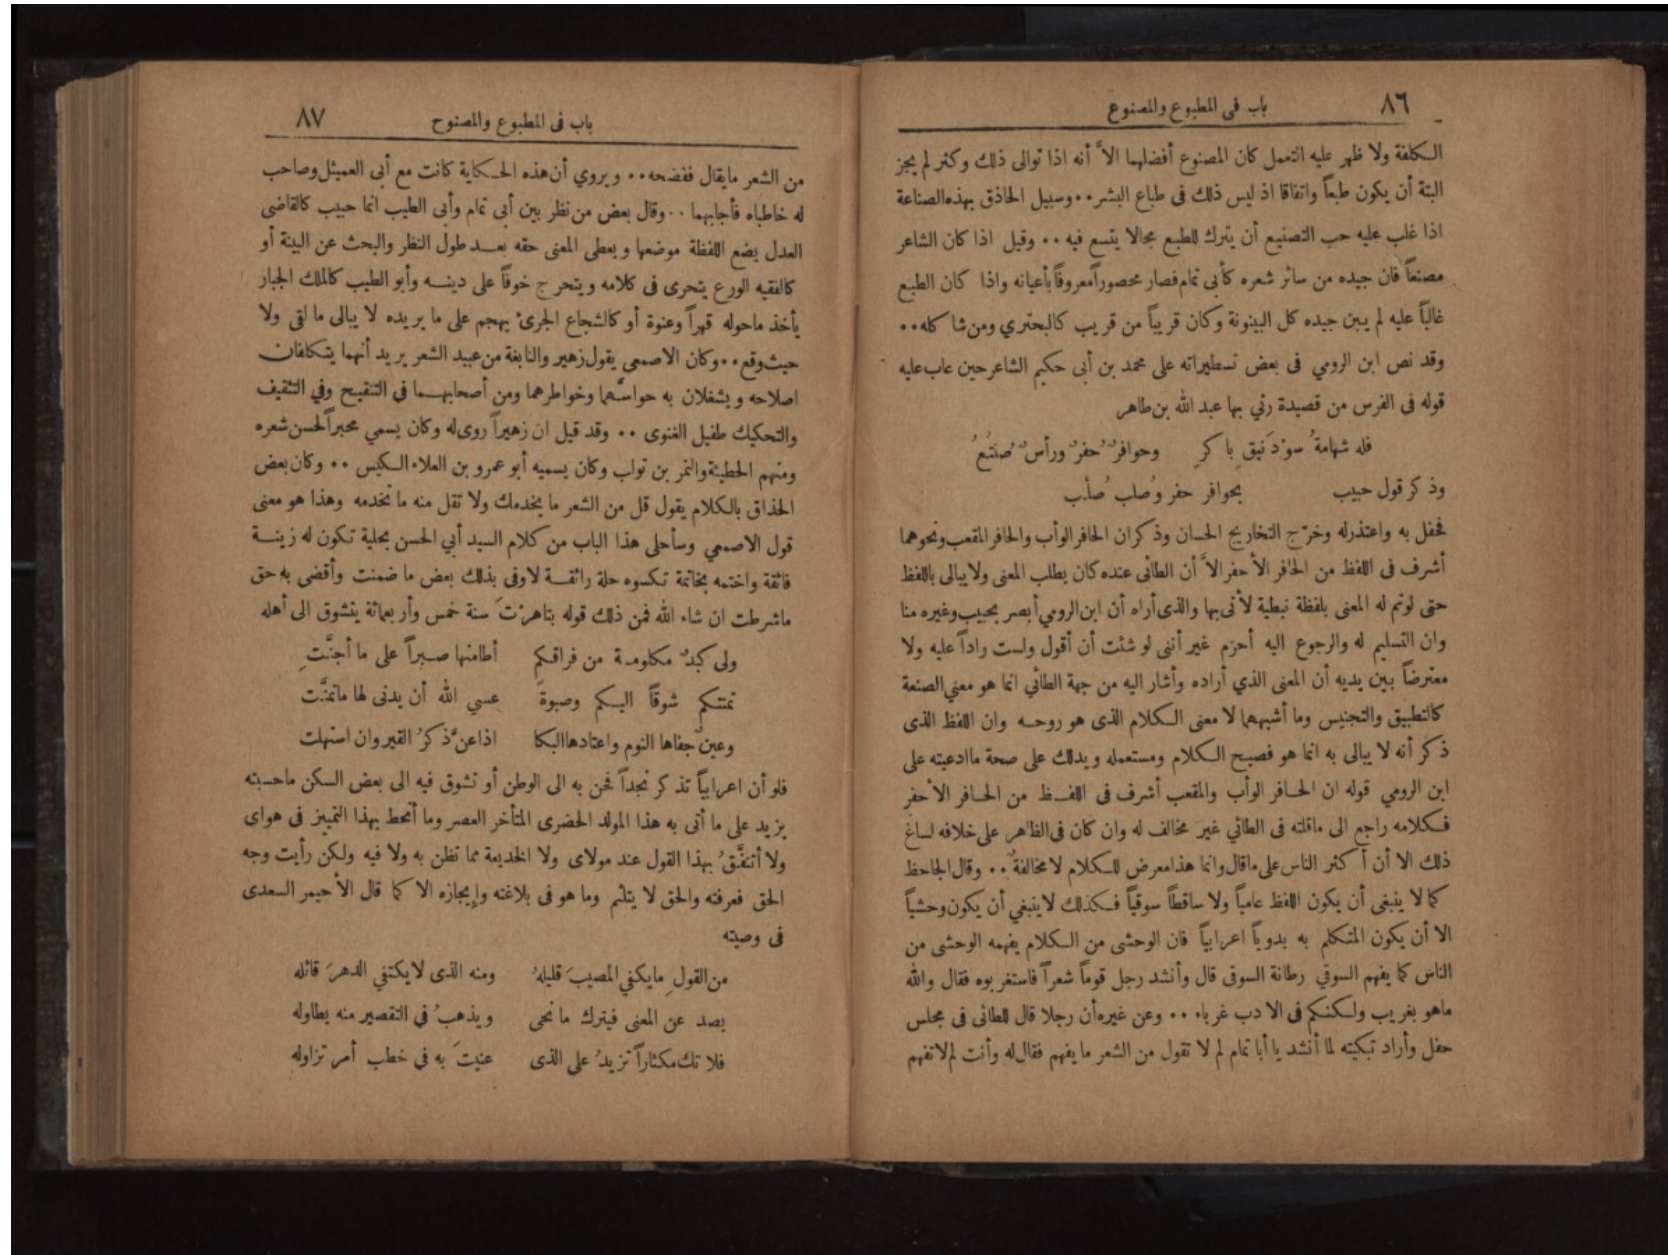 ٨٦ باب فى المطبوع والمصنوع
الكلفة ولا ظهر عليه التعمل كان المصنوع أفضلهما الاَّ أنه اذا توالى ذلك وكثر لم يجز
البتة أن يكون طبعاً واتفاقا اذ ليس ذلك فى طباع البشر٠٠ وسبيل الحاذق بهذه الصناعة
اذا غلب عليه حب التصنيع أن يترك للطبع مجالا يتسع فيه ٠٠ وقيل اذا كان الشاعر
مصنعاً فان جيده من سائر شعره كأبى تمام فصار محصوراً معروفاً بأعيانه واذا كان الطبع
غالباً عليه لم يبن جيده كل البينونة وكان قريباً من قريب كالبحتري ومن شاكله٠٠
وقد نص ابن الرومي فى بعض تسطيراته على محمد بن أبى حكيم الشاعر حين عاب عليه
قوله فى الفرس من قصيدة رثي بها عبد الله بن طاهر
فله شهامةُ سوْدَنيق باكرٍ وحوافرٌ حُفرٌ ورأسٌ صُنتُعُ
وذكر قول حبيب بحوافر حفر وصُلب صُلّب
فحفل به واعتذر له وخرّج التخاريج الحسان وذكر ان الحافر الوأب والحافر المقعب ونحوهما
أشرف فى اللفظ من الحافر الأحفر الاَّ أن الطائى عنده كان يطلب المعنى ولا يبالى باللفظ
حتى لو تم له المعنى بلفظة نبطية لأتى بها والذى أراه أن ابن الرومي أبصر بحبيب وغيره منا
وان التسليم له والرجوع اليه أحزم غير أننى لو شئت أن أقول ولست راداً عليه ولا
معترضاً بين يديه أن المعنى الذي أراده وأشار اليه من جهة الطائي انما هو معني الصنعة
كالتطبيق والتجنيس وما أشبههما لا معنى الكلام الذى هو روحه وان اللفظ الذى
ذكر أنه لا يبالى به انما هو فصيح الكلام ومستعمله ويدلك على صحة ما ادعيته على
ابن الرومي قوله ان الحافر الوأب والمقعب أشرف فى اللفظ من الحافر الأحفر
فكلامه راجع الى ماقلته فى الطائي غير مخالف له وان كان فى الظاهر على خلافه لساغ
ذلك الا أن أكثر الناس على ماقال وانما هذا معرض للكلام لا مخالفةٌ ٠٠ وقال الجاحظ
كما لا ينبغى أن يكون اللفظ عامياً ولا ساقطاً سوقياً فكذلك لا ينبغي أن يكون وحشياً
الا أن يكون المتكلم به بدوياً اعرابياً فان الوحشى من الكلام يفهمه الوحشى من
الناس كما يفهم السوقي رطانة السوقى قال وأنشد رجل قوماً شعراً فاستغربوه فقال والله
ماهو بغريب ولكنكم فى الادب غرباء ٠٠ وعن غيره أن رجلا قال للطائى فى مجلس
حفل وأراد تبكيته لما أنشد يا أبا تمام لم لا تقول من الشعر ما يفهم فقال له وأنت لم لا تفهم
باب فى المطبوع والمصنوع ٨٧
من الشعر مايقال ففضحه٠٠ ويروي أن هذه الحكاية كانت مع أبى العميثل وصاحب
له خاطباه فأجابهما ٠٠ وقال بعض من نظر بين أبى تمام وأبى الطيب انما حبيب كالقاضى
العدل يضع اللفظة موضعها ويعطى المعنى حقه بعد طول النظر والبحث عن البينة أو
كالفقيه الورع يتحرى فى كلامه ويتحرج خوفاً على دينه وأبو الطيب كالملك الجبار
يأخذ ماحوله قهراً وعنوة أو كالشجاع الجرئ يهجم على ما يريده لا يبالى ما لقى ولا
حيث وقع٠٠ وكان الاصمعى يقول زهير والنابغة من عبيد الشعر يريد أنهما يتكلفان
اصلاحه ويشغلان به حواسَّهما وخواطرهما ومن أصحابهما في التنقيح وفي التثقيف
والتحكيك طفيل الغنوى ٠٠ وقد قيل ان زهيراً روى له وكان يسمي محبراً لحسن شعره
ومنهم الحطيئة والنمر بن تولب وكان يسميه أبو عمرو بن العلاء الكيس ٠٠ وكان بعض
الحذاق بالكلام يقول قل من الشعر ما يخدمك ولا تقل منه ما تخدمه وهذا هو معنى
قول الاصمعي وسأحلى هذا الباب من كلام السيد أبي الحسن بحلية تكون له زينة
فائقة واختمه بخاتمة تكسوه حلة رائقة لاوفى بذلك بعض ما ضمنت وأقضى به حق
ماشرطت ان شاء الله فمن ذلك قوله بتاهرْتَ سنة خمس وأربعمائة يتشوق الى أهله
ولى كبدٌ مكلومة من فراقكم أطامنها صبراً على ما أجنَّتِ
تمنتكم شوقاً اليكم وصبوةً عسي الله أن يدنى لها ماتمنَّت
وعينٌ جفاها النوم واعتادها البكا اذا عنَّ ذكرُ القيروان استهلت
فلو أن اعرابياً تذكر نجداً فحن به الى الوطن أو تشوق فيه الى بعض السكن ماحسبته
يزيد على ما أتى به هذا المولد الحضرى المتأخر العصر وما أنحط بهذا التمييز فى هواى
ولا أتنفَّقُ بهذا القول عند مولاى ولا الخديعة مما تظن به ولا فيه ولكن رأيت وجه
الحق فعرفته والحق لا يتلثم وما هو فى بلاغته وإيجازه الا كما قال الأحيمر السعدى
فى وصيته
من القولِ مايكفي المصيبَ قليلهُ ومنه الذى لا يكتفي الدهرَ قائله
يصد عن المعنى فيترك مانحى ويذهبُ في التقصير منه يطاوله
فلا تك مكثاراً تزيدُ على الذى عنيتَ به في خطب أمر تزاوله